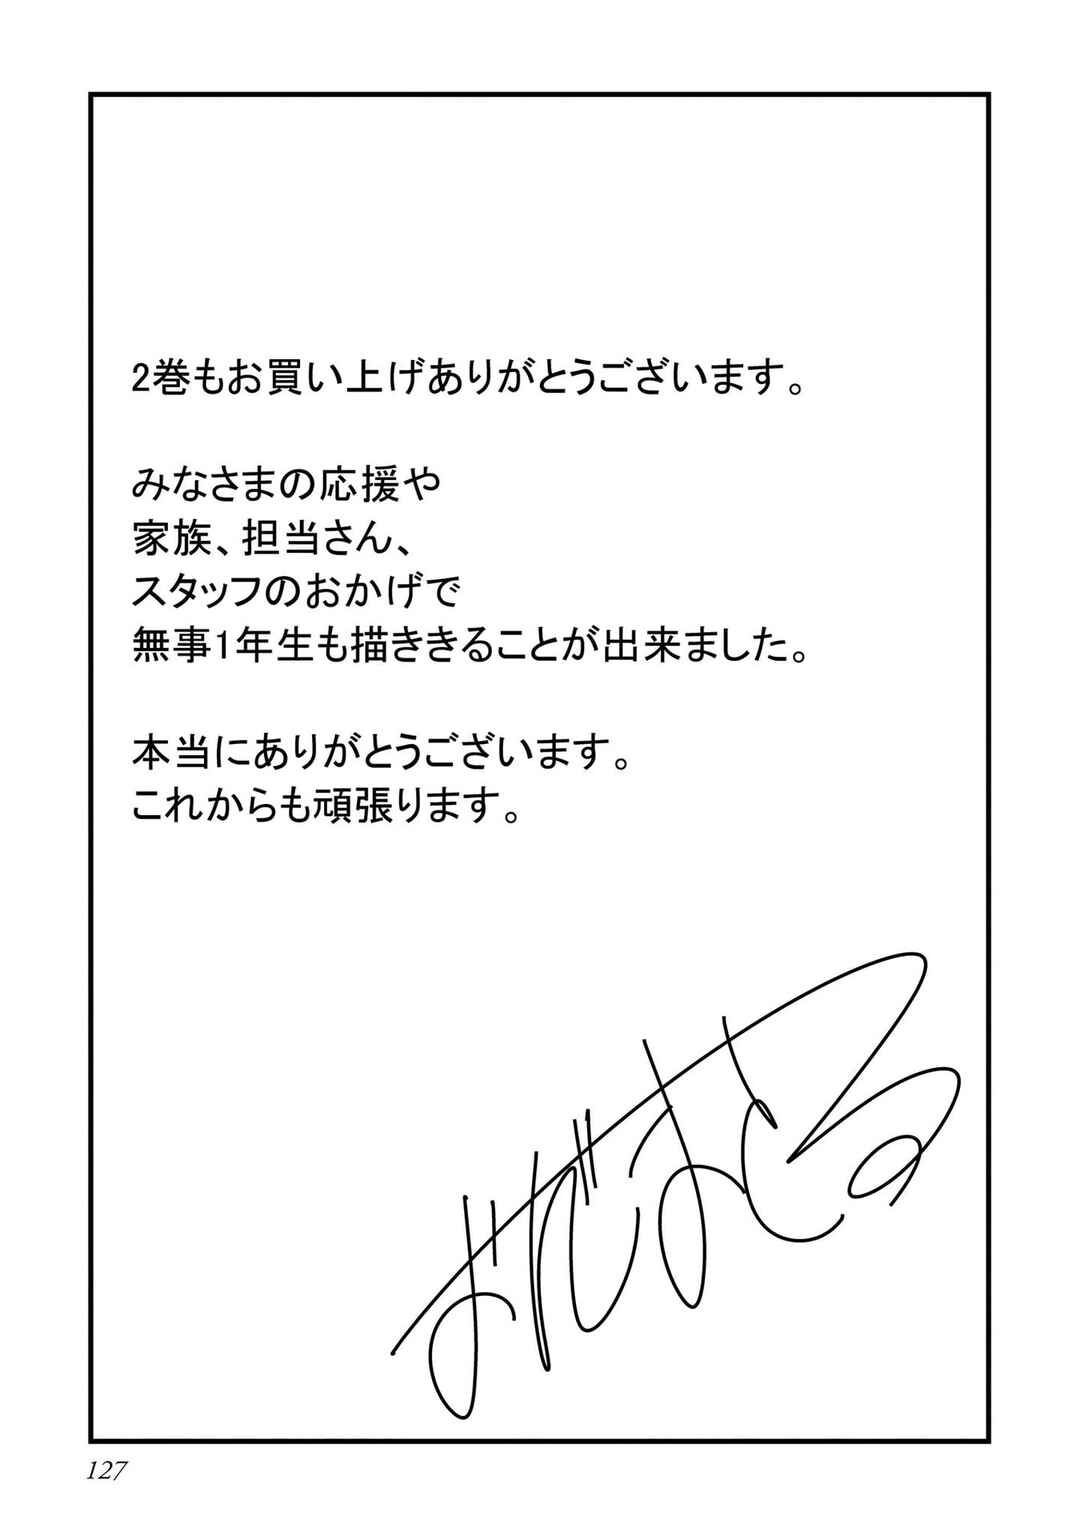 2巻もお買い上げありがとうございます。
みなさまの応援や
家族、担当さん、
スタッフのおかげで
無事1年生も描ききることが出来ました。
本当にありがとうございます。
これからも頑張ります。
127